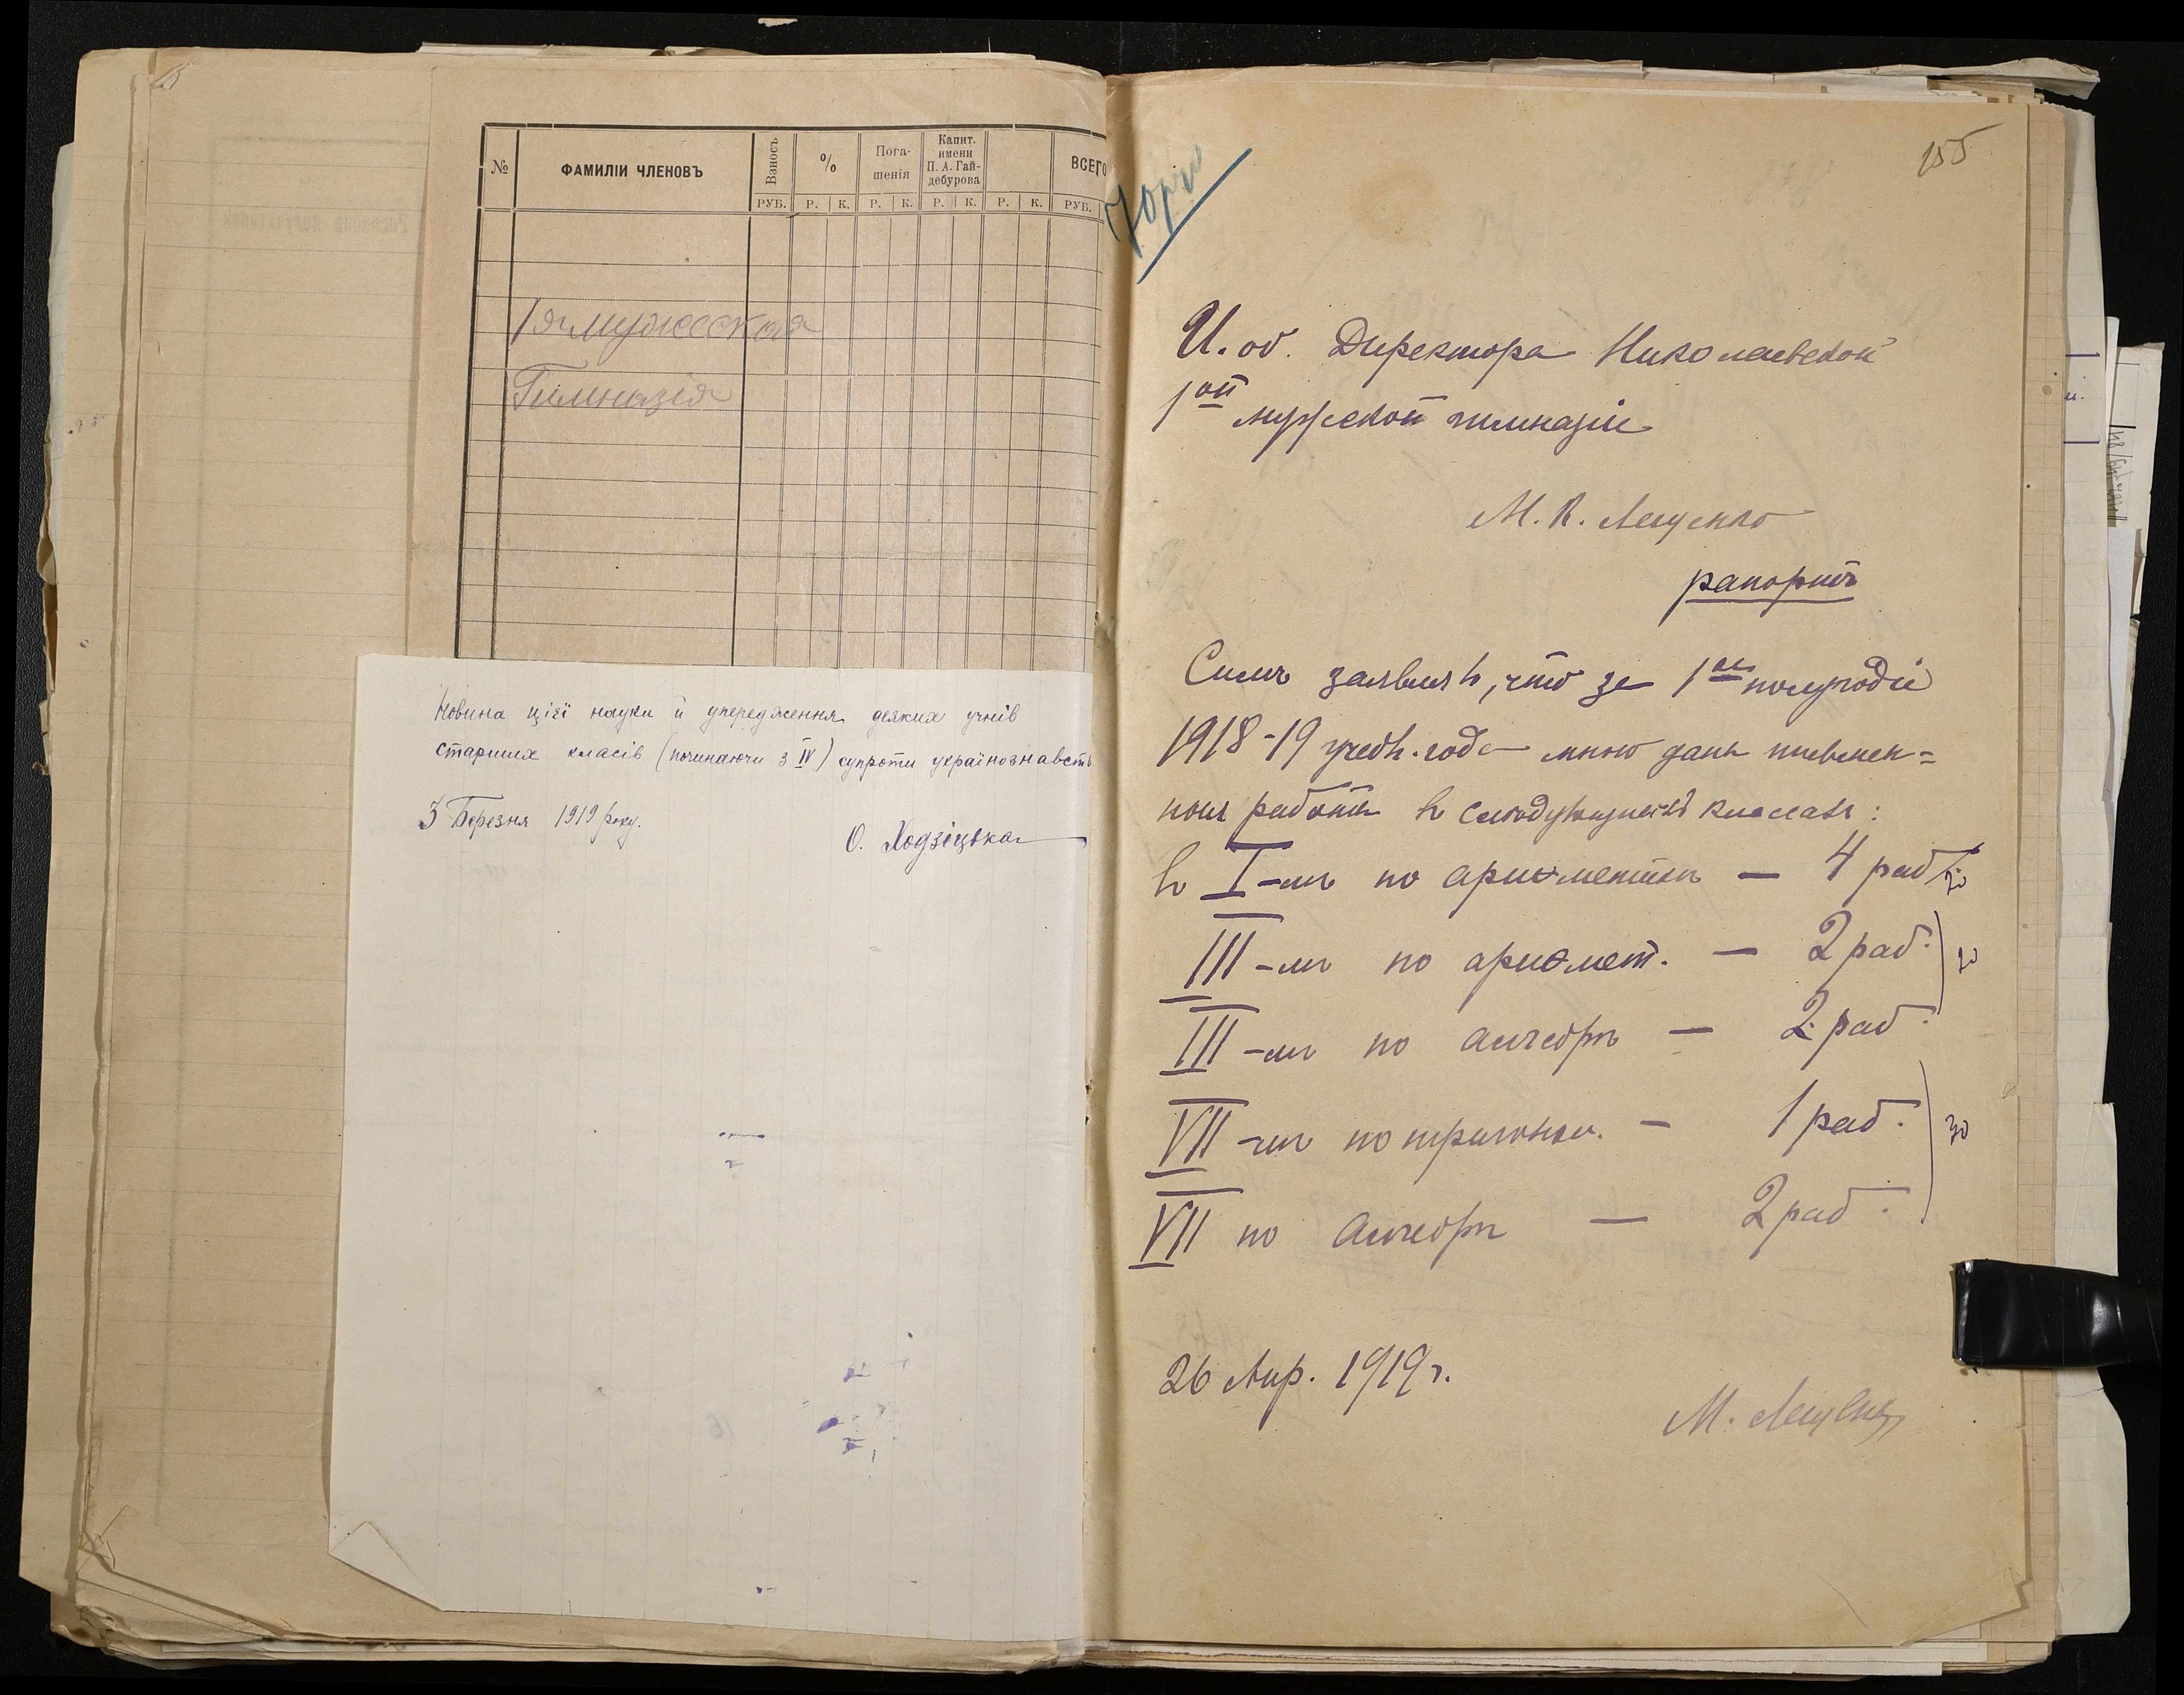 №
ФАМИЛІИ ЧЛЕНОВЪ
Взносъ
%
Пога-
шенія
Капит.
имени
П. А. Гай-
дебурова
ВСЕГО
РУБ. Р. К. Р. К. Р. К. Р. К. РУБ.
1я мужеская
Гимназія
Новина цієї науки й упередження деяких учнів
старших класів (починаючи з IV) супроти українознавств
3 Березня 1919 року.
О. Ходзіцька
155
И. об. Директора Николаевской
1ой мужской гимназіи
М. К. Лещенко
рапортъ
Симъ заявляю, что за 1ое полугодіе
1918-19 учебн. года мною даны письмен=
ныя работы въ слѣдующихъ классахъ:
въ I-мъ по ариѳметикѣ — 4 раб. 20
III-мъ по ариѳмет. — 2 раб. 20
III-мъ по алгебрѣ — 2 раб.
VII-мъ по тригоном. — 1 раб. 30
VII по алгебрѣ — 2 раб.
26 Апр. 1919 г.
М. Лещенко